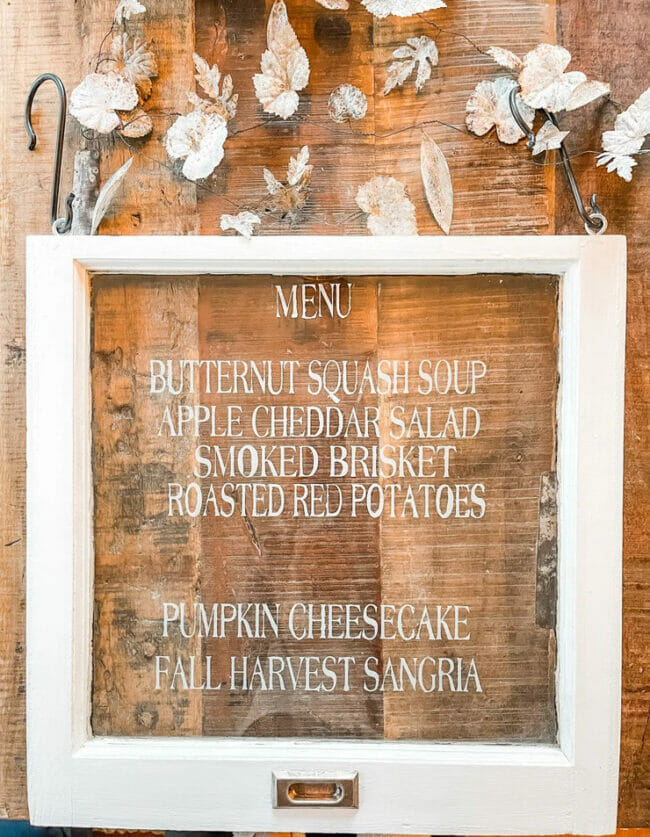 MENU
BUTTERNUT SQUASH SOUP
APPLE CHEDDAR SALAD
SMOKED BRISKET
ROASTED RED POTATOES
PUMPKIN CHEESECAKE
FALL HARVEST SANGRIA